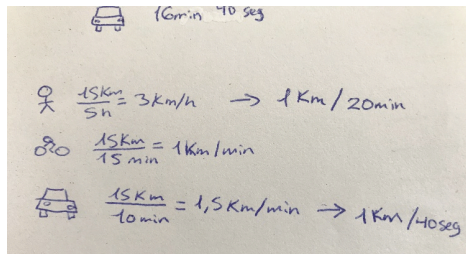 16min 40 seg
15Km/5h = 3Km/h → 1Km/20min
15Km/15min = 1Km/min
15Km/10min = 1,5Km/min → 1Km/40seg